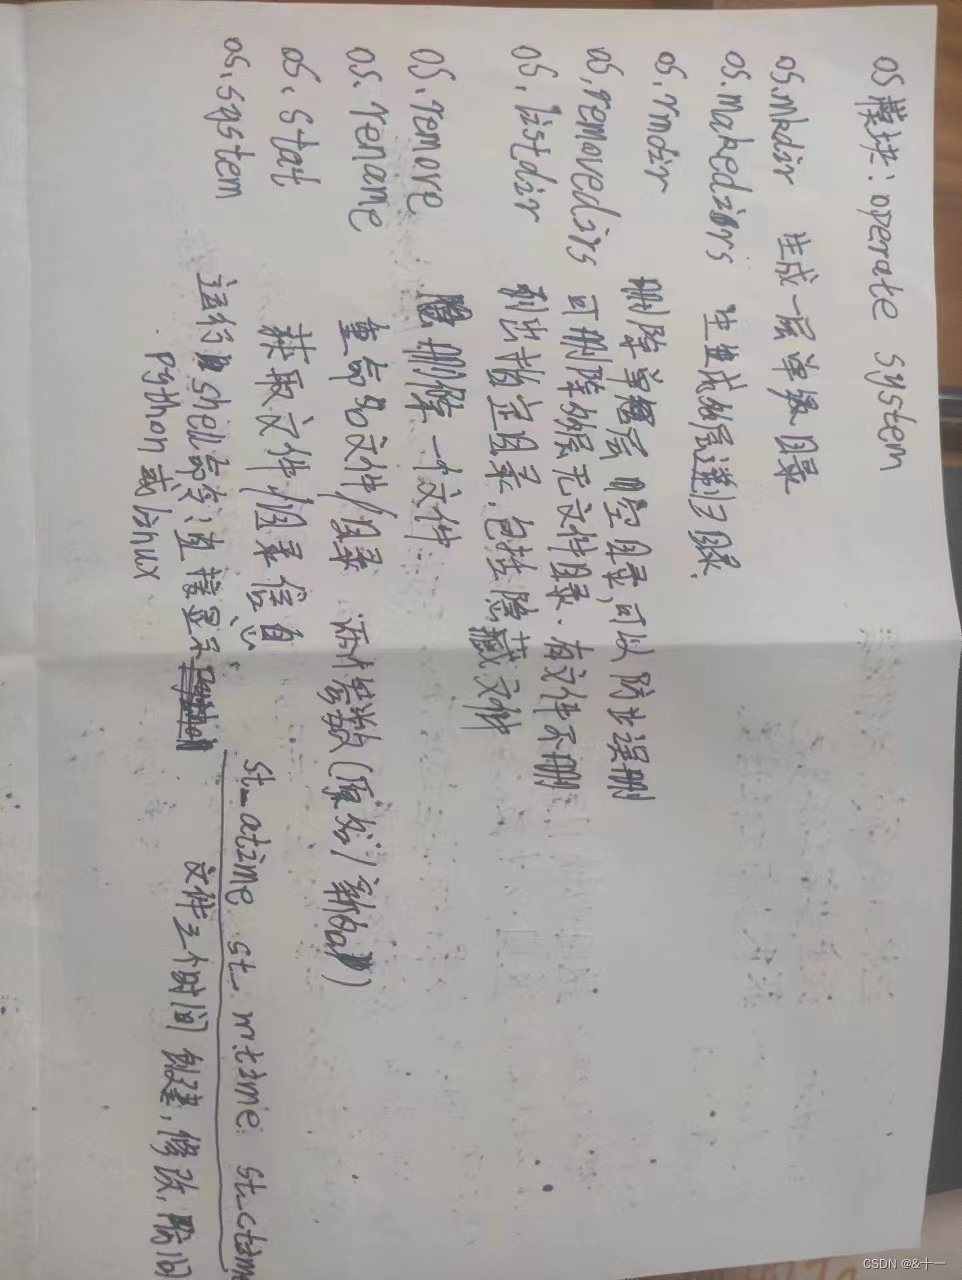 os模块：operate system
os.mkdir 生成一层单级目录
os.makedirs 生成多层递归目录.
os.rmdir 删除单层空目录,可以防止误删
os.removedirs 可删除多层无文件目录.有文件不删
os.listdir 列出指定目录,包括隐藏文件
os.remove 删除一个文件.
os.rename 重命名文件/目录 两个参数(原始/新的)
os.stat 获取文件/目录信息
st_atime st_mtime st_ctime
os.system 运行shell命令;直接显示
文件三个时间 创建,修改,访问
python或linux